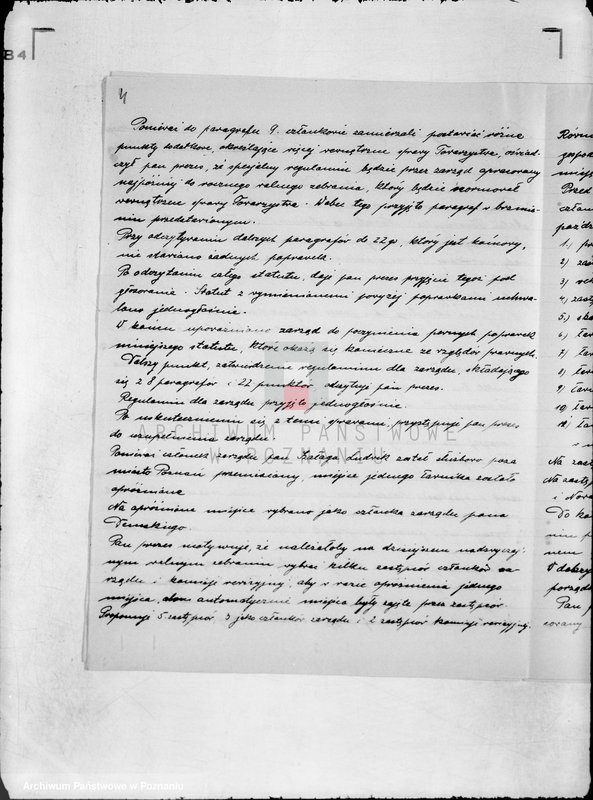 B4
4
Ponieważ do paragrafu 9. członkowie zamierzali postawić różne
punkty dodatkowe, określające więcej wewnętrzne sprawy Towarzystwa, oświad-
czył pan prezes, że specjalny regulamin będzie przez zarząd opracowany
najpóźniej do rocznego walnego zebrania, który będzie normował
wewnętrzne sprawy Towarzystwa. Wobec tego przyjęto paragraf w brzmie-
niu przedstawionym.
Przy odczytywaniu dalszych paragrafów do 22go, który jest końcowy,
nie stawiano żadnych poprawek.
Po odczytaniu całego statutu, daje pan prezes przyjęcie tegoż pod
głosowanie. Statut z wymienianemi powyżej poprawkami uchwa-
lono jednogłośnie.
W końcu upoważniono zarząd do poczynienia pewnych poprawek
niniejszego statutu, które okażą się konieczne ze względów prawnych.
Dalszy punkt, zatwierdzenie regulaminu dla zarządu, składającego
się z 8 paragrafów i 22 punktów odczytuje pan prezes.
Regulamin dla zarządu przyjęto jednogłośnie.
Po uskutecznieniu się z temi sprawami, przystępuje pan prezes
do uzupełnienia zarządu.
Ponieważ członek zarządu pan Ludwik został służbowo poza
miasto Poznań przeniesiony, miejsce jednego ławnika zostało
opróżnione.
Na opróżnione miejsce wybrano jako członka zarządu pana
Demskiego.
Pan prezes motywuje, że należałoby na dzisiejszem nadzwyczaj-
nym walnym zebraniu wybrać kilku zastępców członków za-
rządu i komisji rewizyjnej, aby w razie opróżnienia jednego
miejsca, automatycznie miejsca były zajęte przez zastępców.
Proponuje 5 zastępców 3 jako członków zarządu i 2 zastępców komisji rewizyjnej.
Przed
człon
1.)
2)
3)
4)
5)
6)
7)
8)
9)
10)
Na zast
Na zastę
i Nowa
Do ko
nem
W dalszy
porządk
Pan
ARCHIWUM PAŃSTWOWE
W POZNANIU
Archiwum Państwowe w Poznaniu